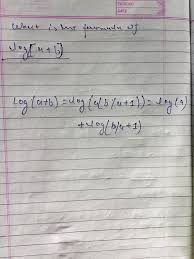 What is the formula of
log[a+b]
log(a+b) = log(a(b/a+1)) = log(a)
+ log(b/a+1)